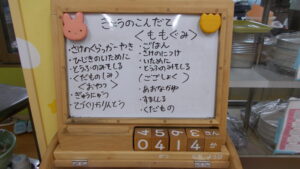 きょうのこんだて
・さけのくらっかーやき
・ひじきのいために
・とうふのみそしる
・くだもの(しみ)
〈おやつ〉
・ぎゅうにゅう
・てづくりかりんとう
〈ももぐみ〉
・ごはん
・さけのにつけ
・いために
・とうふのみそしる
〈ごごしょく〉
・あおながゆ
・すましじる
・くだもの
04 14